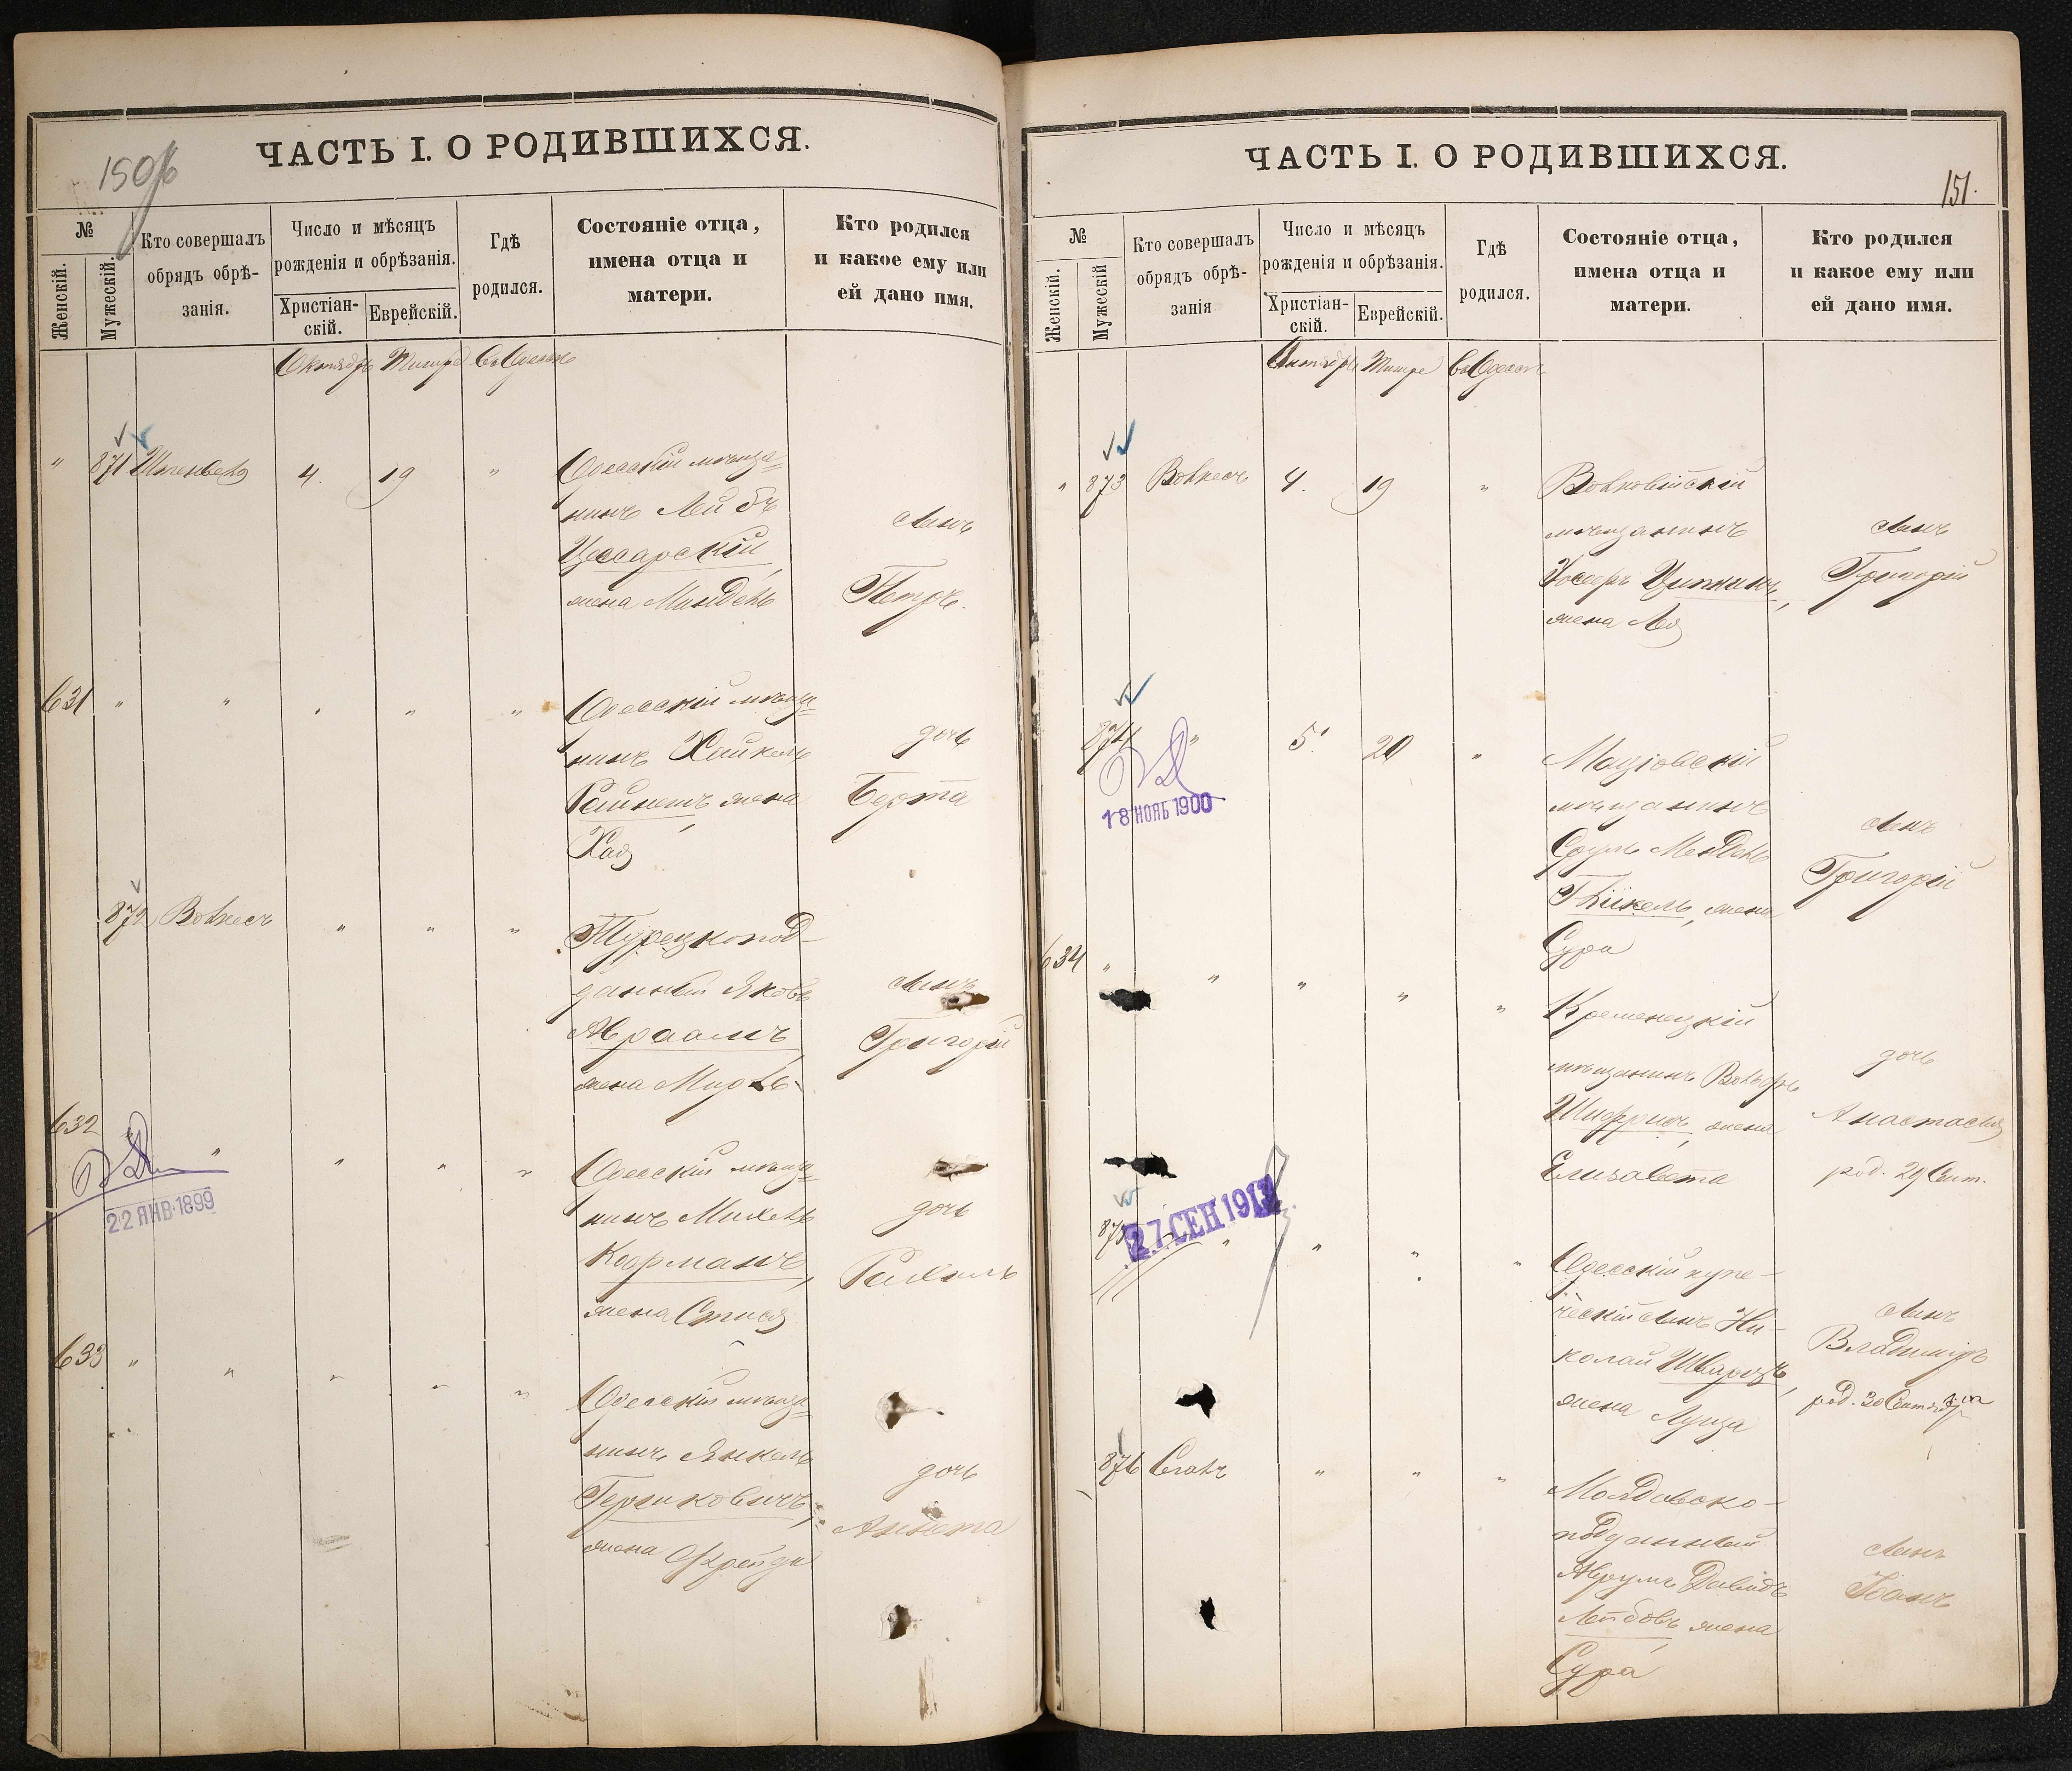 150/б
ЧАСТЬ I. О РОДИВШИХСЯ.
№
Женскій.
Мужескій.
Кто совершалъ
обрядъ обрѣ-
занія.
Число и мѣсяцъ
рожденія и обрѣзанія.
Христіан-
скій.
Еврейскій.
Гдѣ
родился.
Состояніе отца,
имена отца и
матери.
Кто родился
и какое ему или
ей дано имя.
Октябрь Тишре Въ Одессѣ
" 871 4. 19 "
Одесскій мѣща=
нинъ Лейбъ
Цесарскій,
жена Миндель
сынъ
Петръ.
631 " " " " "
Одесскій мѣща=
нинъ Хайкель
жена
Хая
дочь
Берта
872 Волкесъ " " "
Турецкопод-
данный Яковъ
Авраамъ,
жена
сынъ
Григорій
632 " " " "
22 ЯНВ 1899
Одесскій мѣща=
нинъ Михель
Коорманъ,
жена
дочь
Рахиль
633 " " " " "
Одесскій мѣща=
нинъ Янкель
Гершковичъ,
жена Фрейда
дочь
Аннета
151.
ЧАСТЬ I. О РОДИВШИХСЯ.
№
Женскій.
Мужескій
Кто совершалъ
обрядъ обрѣ-
занія
Число и мѣсяцъ
рожденія и обрѣзанія.
Христіан-
скій.
Еврейскій.
Гдѣ
родился.
Состояніе отца,
имена отца и
матери.
Кто родился
и какое ему или
ей дано имя.
Октябрь Тишре Въ Одессѣ
" 873 Волкесъ 4. 19 "
мѣщанинъ
Іосифъ Ципкинъ,
жена Лея
сынъ
Григорій
874 " 5. 20 "
18 НОЯБ 1900
Маціовскій
мѣщанинъ
Сруль Мендель
жена
Сура
сынъ
Григорій
634 " " " " "
Кременецкій
мѣщанинъ Вольфъ
Шифрисъ, жена
Елизавета
дочь
Анастасія
род. 29 Сент.
27 СЕН 1912
875 " " " "
Одесскій купе-
ческій сынъ Ни-
колай Шварцъ,
жена Луиза
сынъ
Владиміръ
род. 30 Сентября
876 " " "
Молдавско-
подданный
Аврумъ Давидъ
Лейбовъ, жена
Сура
сынъ
Іоанъ